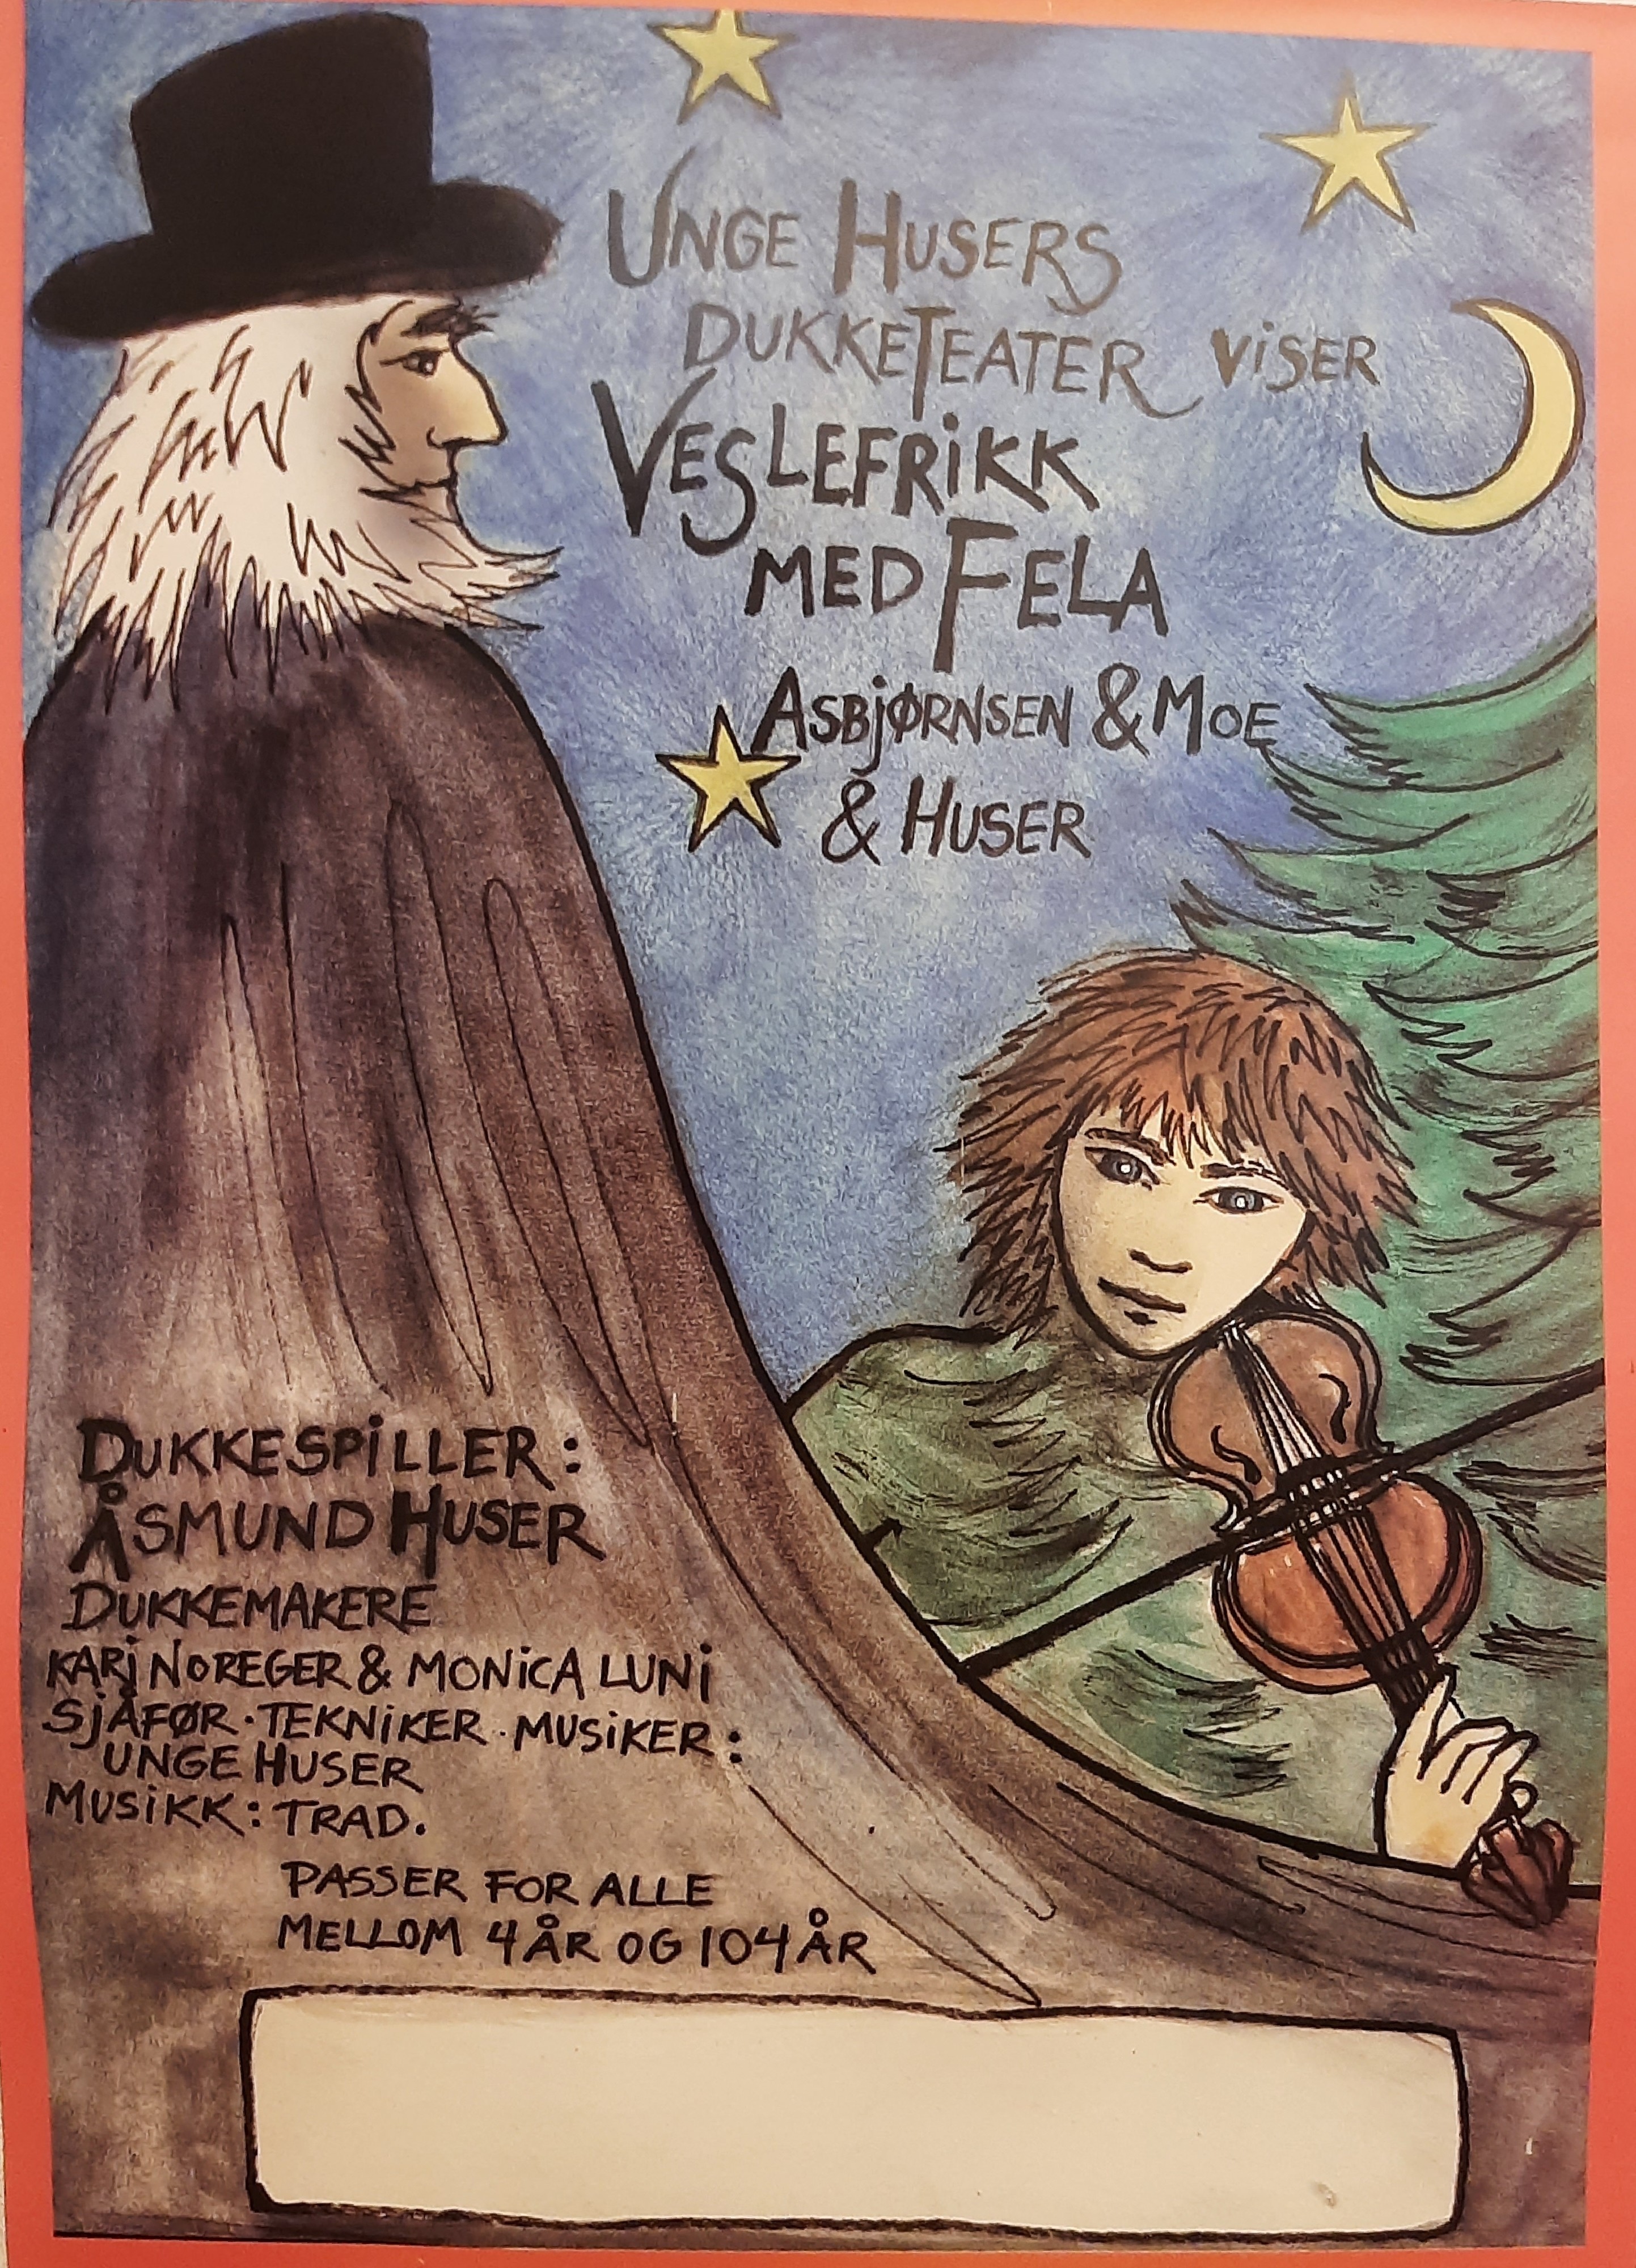 UNGE HUSERS
DUKKETEATER VISER
VESLEFRIKK
MED FELA
ASBJØRNSEN & MOE
& HUSER
DUKKESPILLER:
ÅSMUND HUSER
DUKKEMAKERE
KARI NOREGER & MONICA LUNI
SJÅFØR · TEKNIKER · MUSIKER:
UNGE HUSER
MUSIKK: TRAD.
PASSER FOR ALLE
MELLOM 4 ÅR OG 104 ÅR